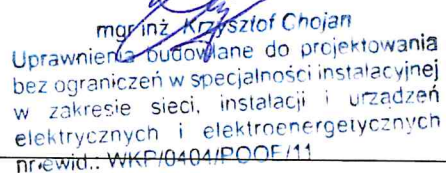 mgr inż. Krzysztof Chojan
Uprawnienia budowlane do projektowania
bez ograniczeń w specjalności instalacyjnej
w zakresie sieci, instalacji i urządzeń
elektrycznych i elektroenergetycznych
nr ewid.: WKP/0404/POOE/11